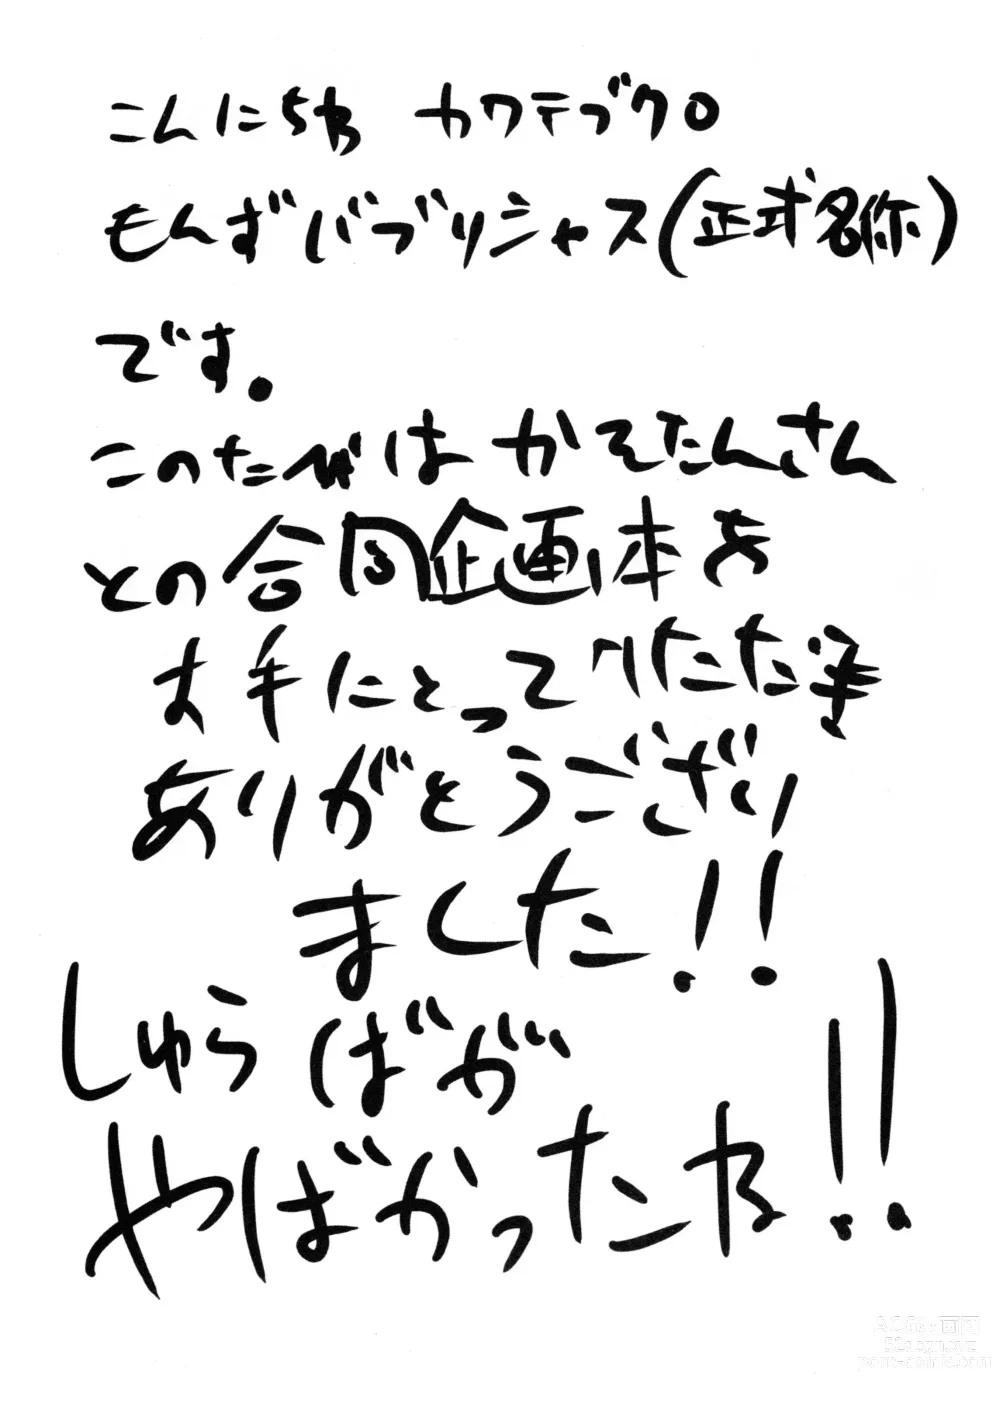 こんにちわ カワテブクロ
もんずバブリシャス(正式名称)
です。
このたびは かそたんさん
との合同企画本を
お手にとって いただき
ありがとうござい
ました!!
しゅらばが
やばかったね!!